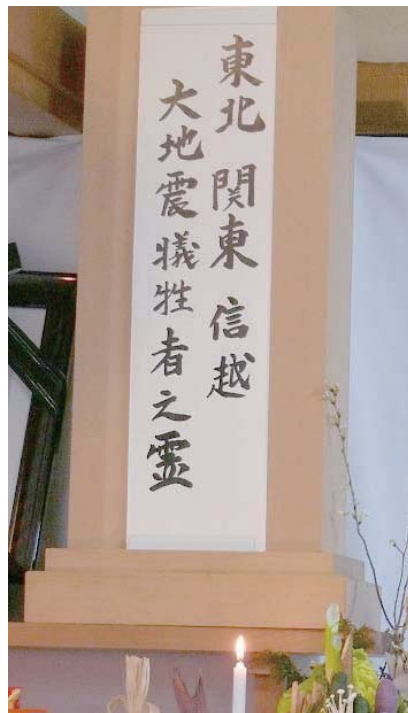 東北 関東 信越
大地震犠牲者之霊